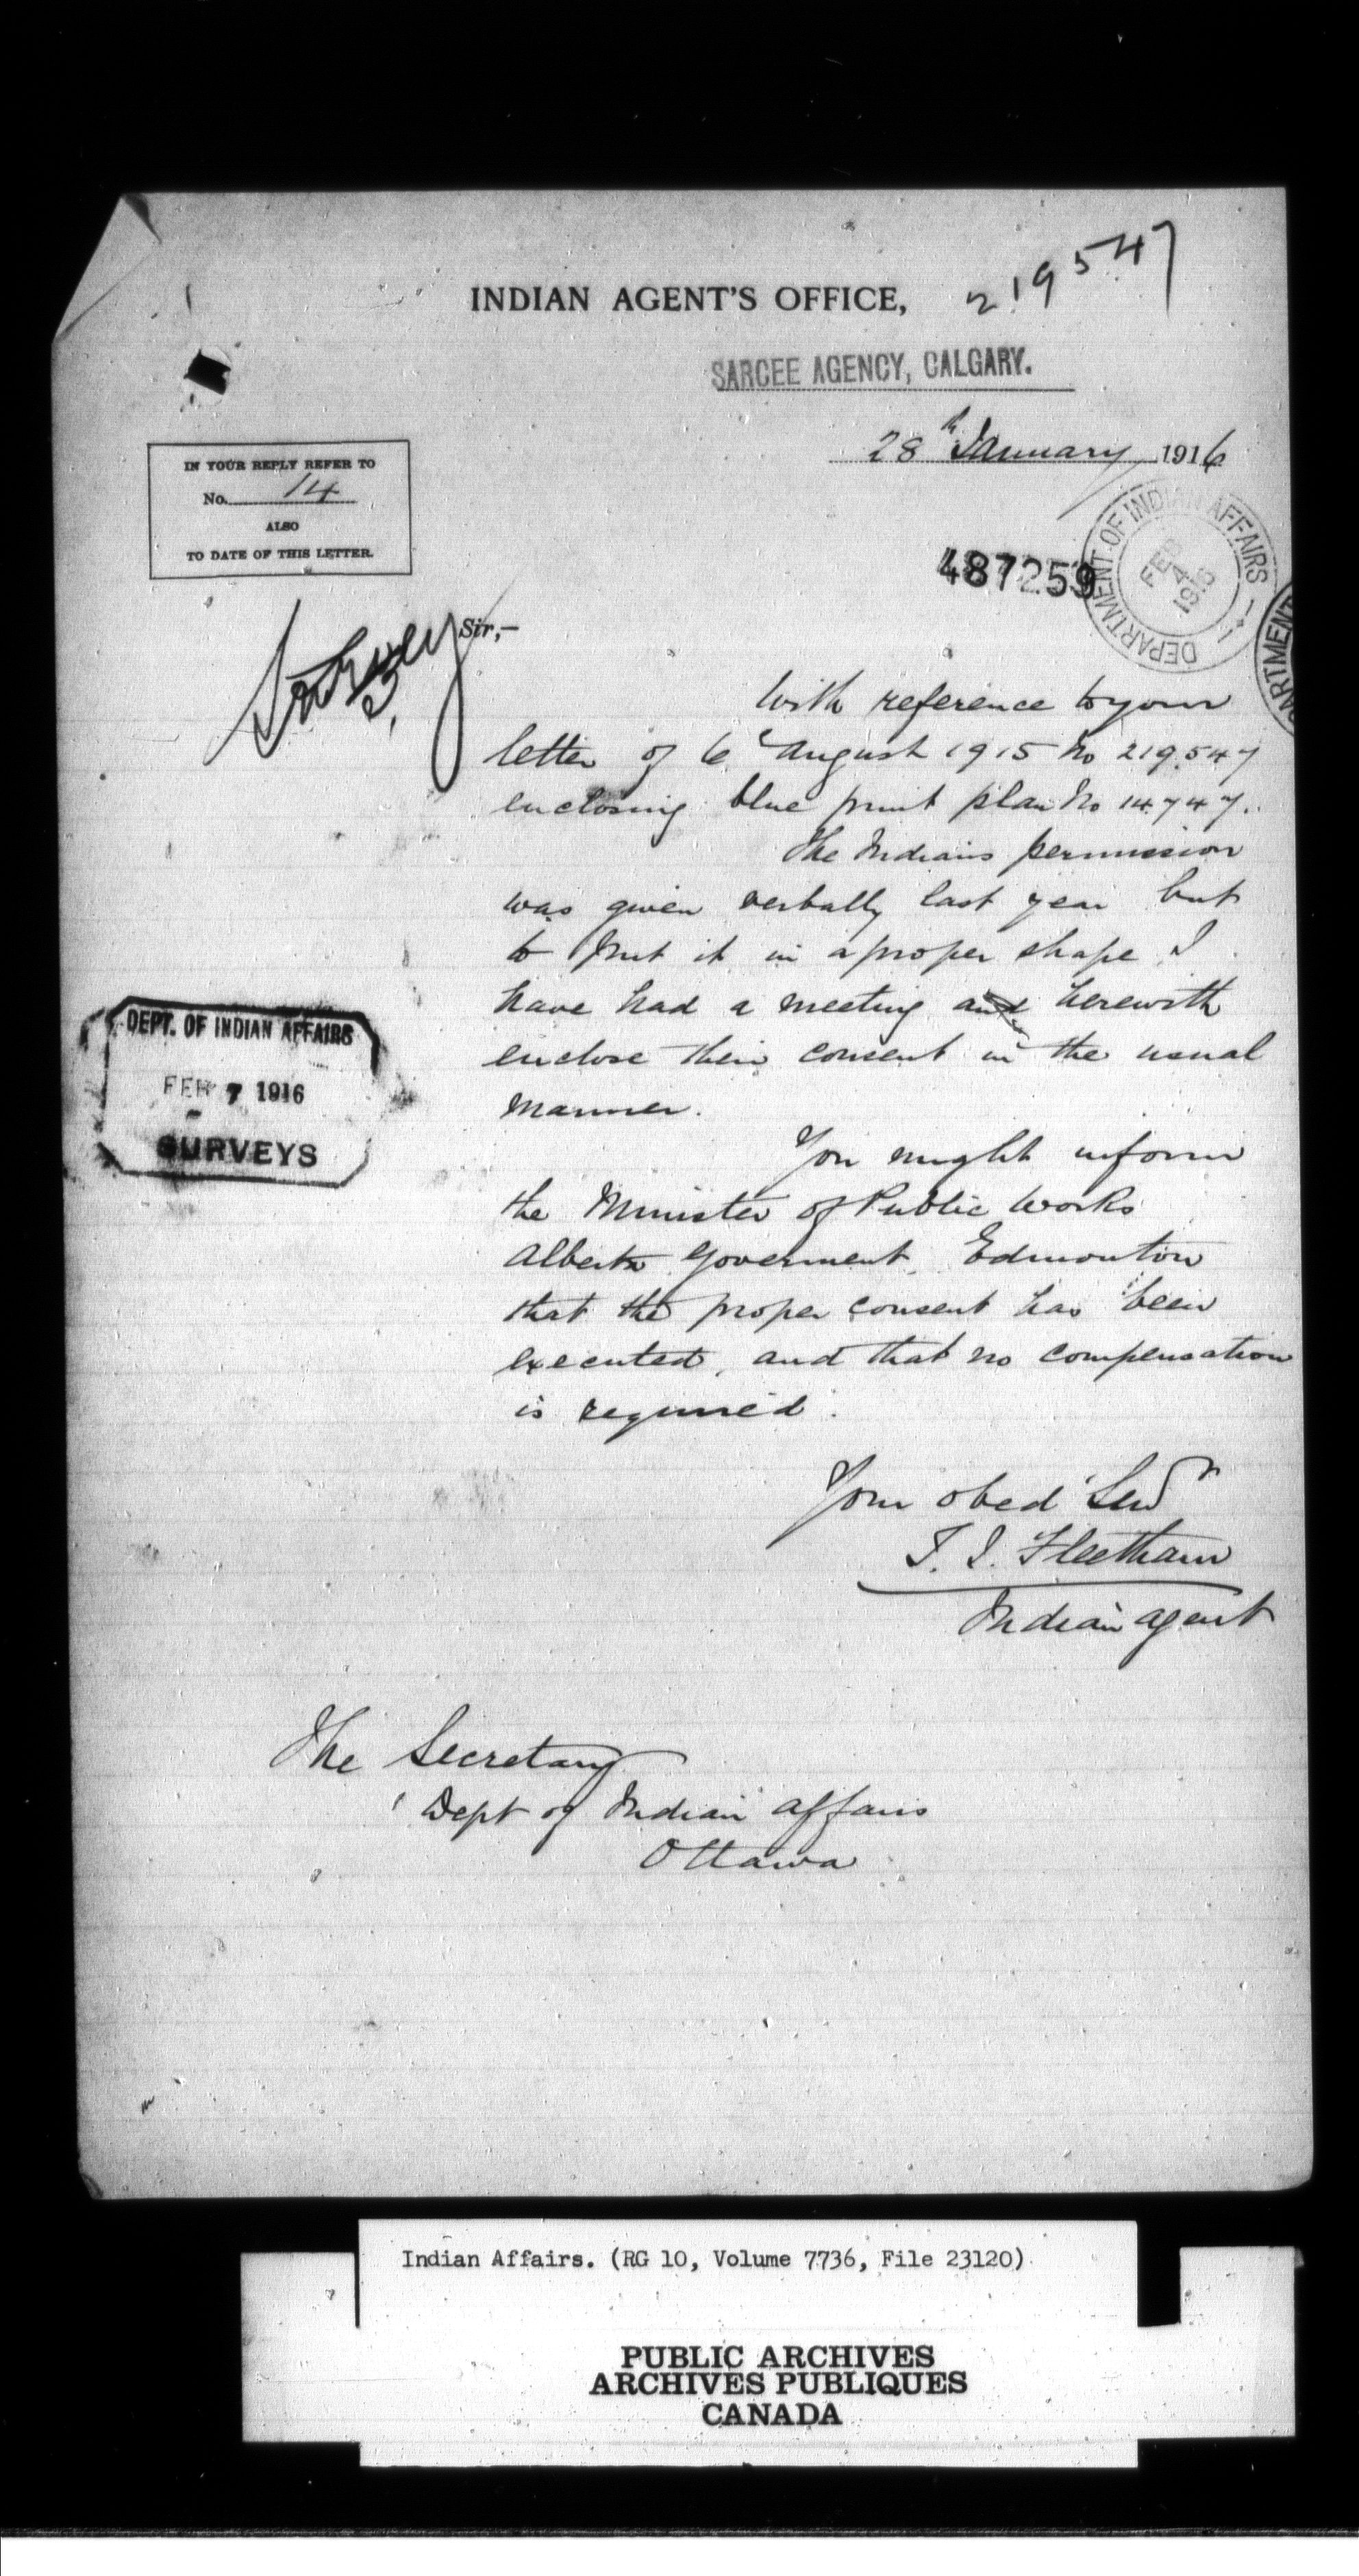 219547
INDIAN AGENT'S OFFICE,
SARCEE AGENCY, CALGARY.
28th January 1916
IN YOUR REPLY REFER TO
No. 14
ALSO
TO DATE OF THIS LETTER.
487259
DEPARTMENT OF INDIAN AFFAIRS
FEB
4
1916
ARTMENT
Sir,—
With reference to your
letter of 6 August 1915 No 219.547
enclosing blue print plan No 14747.
The Indians permission
was given verbally last year but
to put it in a proper shape I
have had a meeting and herewith
enclose their consent in the usual
manner.
DEPT. OF INDIAN AFFAIRS
FEB 7 1916
SURVEYS
You might inform
the Minister of Public Works
Alberta Goverment Edmonton
that the proper consent has been
executed, and that no compensation
is required.
Your obed Servt
T. J. Fleetham
Indian agent
The Secretary
Dept of Indian Affairs
Ottawa
Indian Affairs. (RG 10, Volume 7736, File 23120)
PUBLIC ARCHIVES
ARCHIVES PUBLIQUES
CANADA